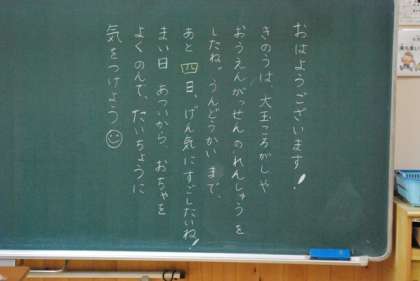 おはようございます!
きのうは、大玉ころがしや
おうえんがっせんのれんしゅうを
したね。うんどうかいまで、
あと四日、げん気にすごしたいね!
まい日あついから、おちゃを
よくのんで、たいちょうに
気をつけよう